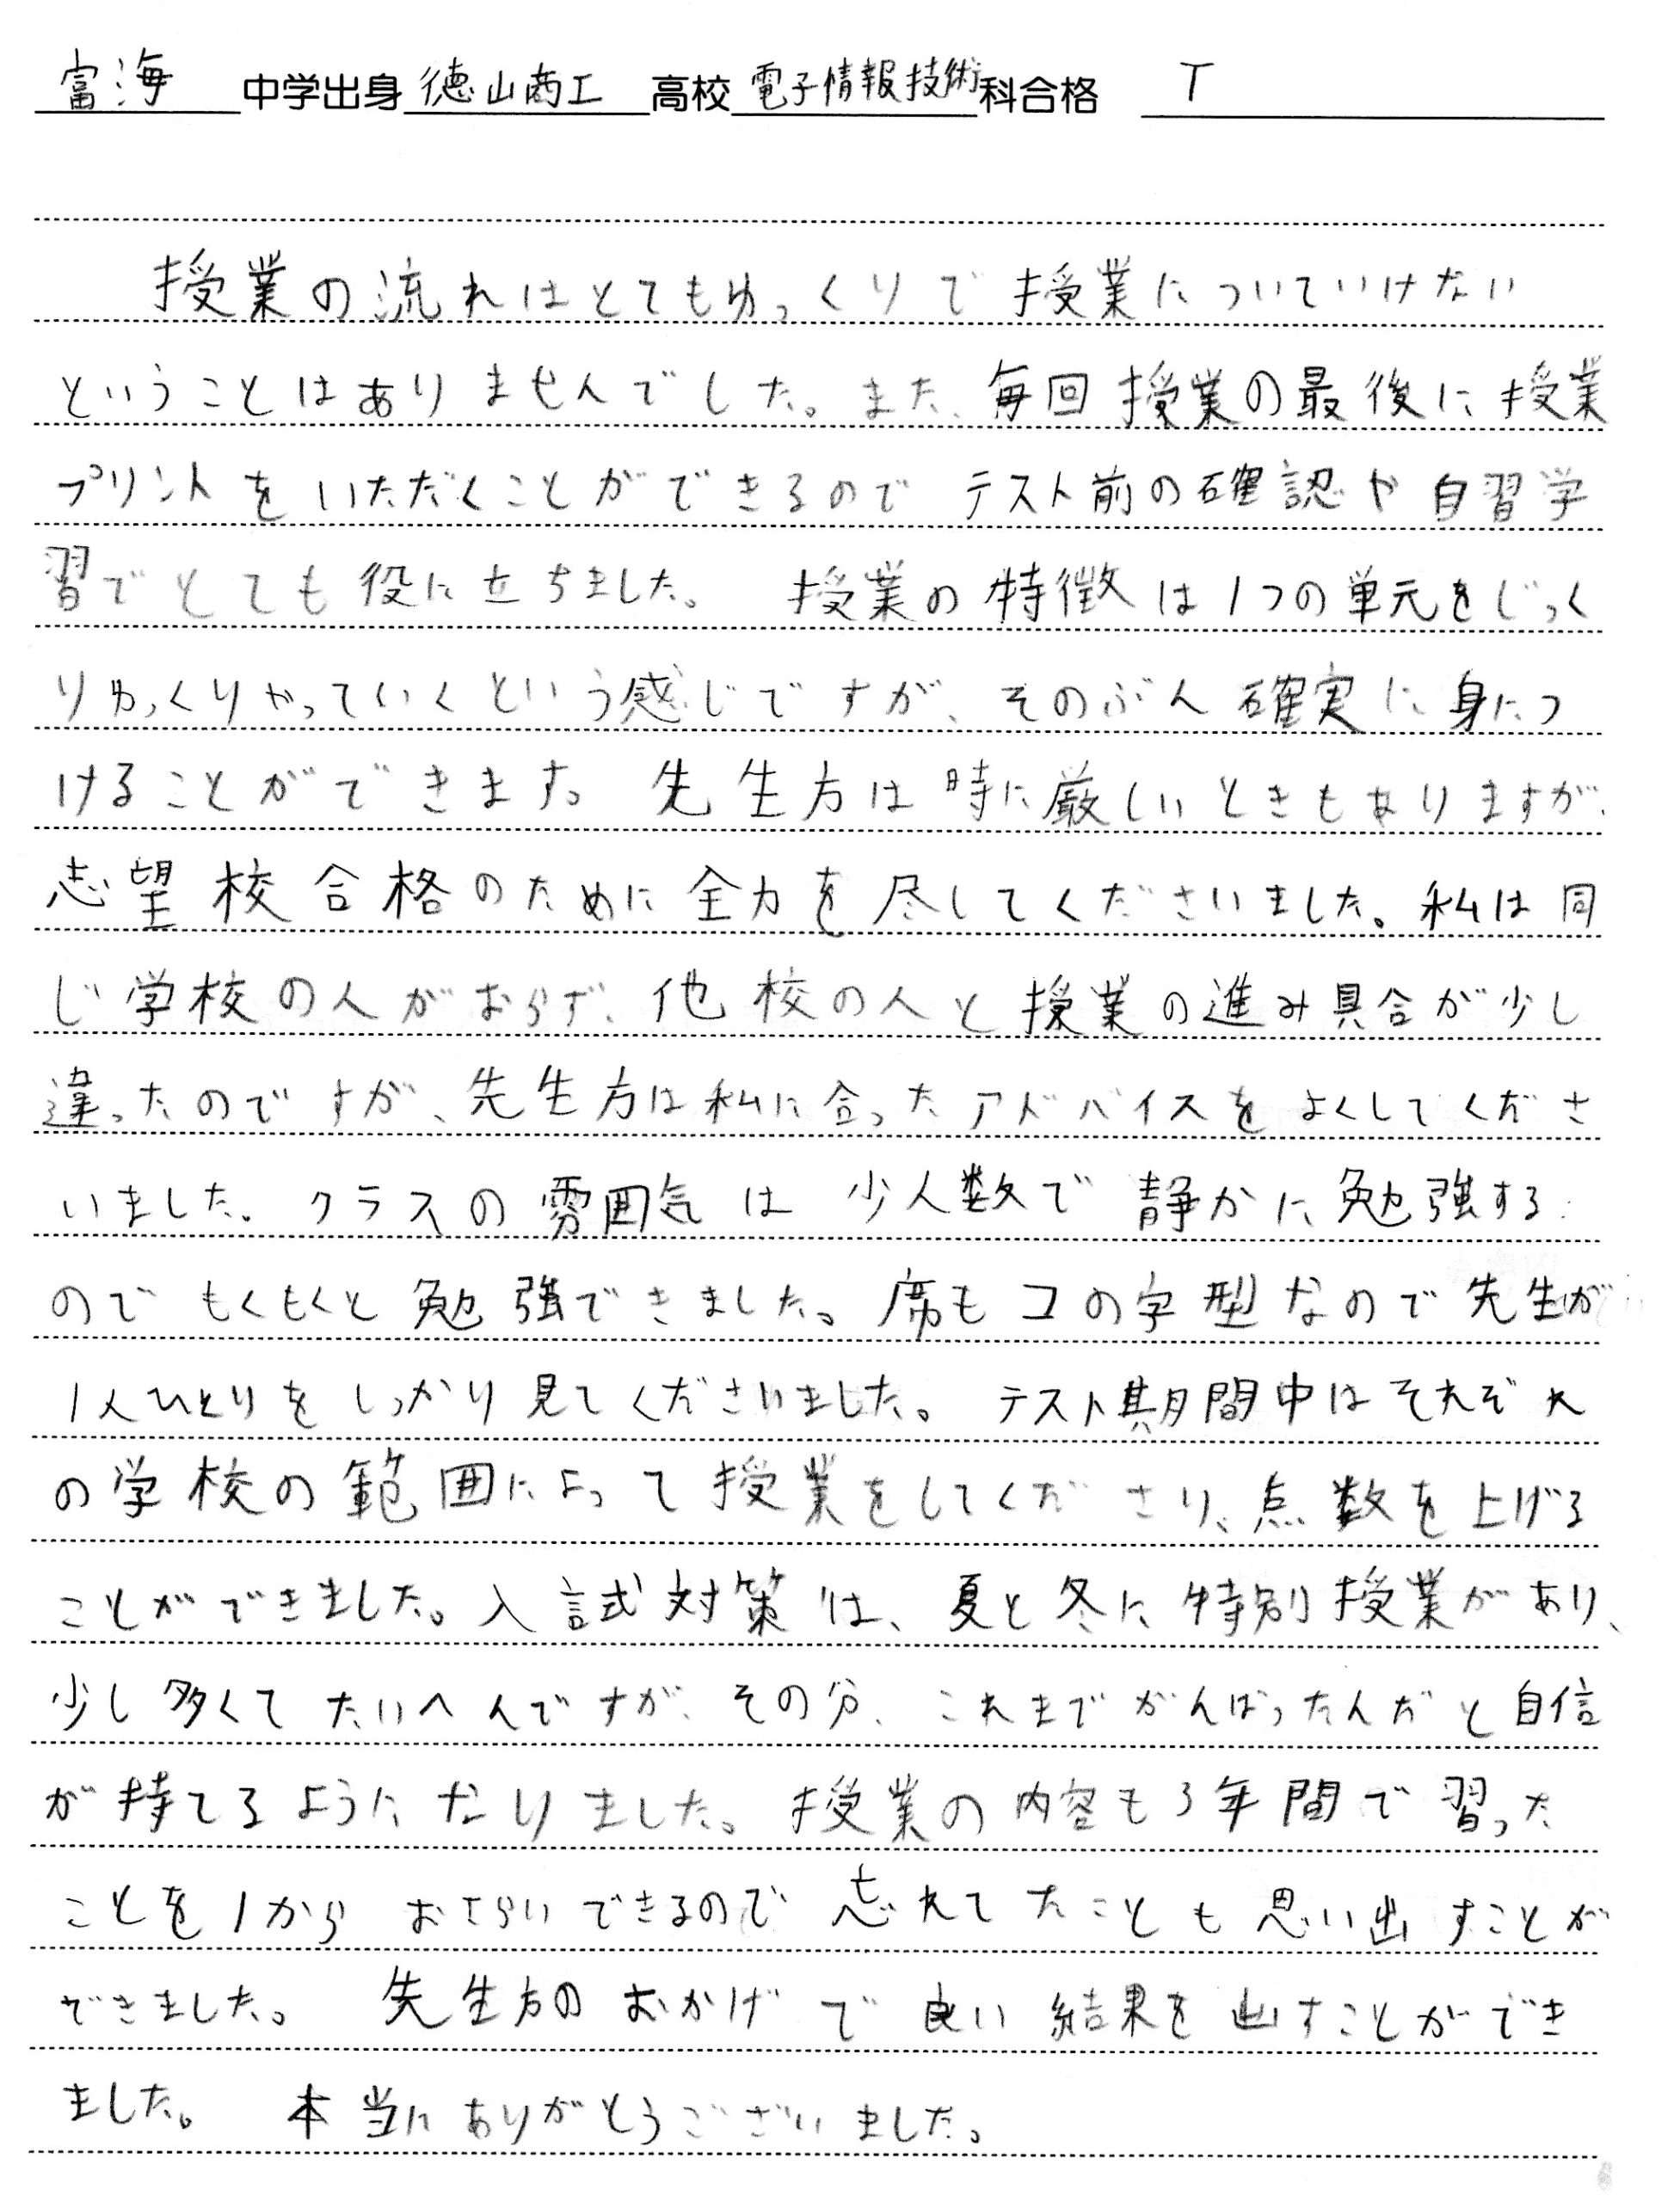 富海 中学出身 徳山商工 高校 電子情報技術 科合格 T
授業の流れはとてもゆっくりで授業についていけない
ということはありませんでした。また、毎回授業の最後に授業
プリントをいただくことができるのでテスト前の確認や自習学
習でとても役に立ちました。 授業の特徴は1つの単元をじっく
りゆっくりやっていくという感じですが、そのぶん確実に身につ
けることができます。 先生方は時に厳しいときもありますが、
志望校合格のために全力を尽してくださいました。私は同
じ学校の人がおらず、他校の人と授業の進み具合が少し
違ったのですが、先生方は私に合ったアドバイスをよくしてくださ
いました。クラスの雰囲気は少人数で静かに勉強する
のでもくもくと勉強できました。席もコの字型なので先生が
1人ひとりをしっかり見てくださいました。 テスト期間中はそれぞれ
の学校の範囲によって授業をしてくださり、点数を上げる
ことができました。入試対策は、夏と冬に特別授業があり、
少し多くてたいへんですが、その分、これまでがんばったんだと自信
が持てるようになりました。授業の内容も3年間で習った
ことを1からおさらいできるので忘れてたことも思い出すことが
できました。 先生方のおかげで良い結果を出すことができ
ました。 本当にありがとうございました。